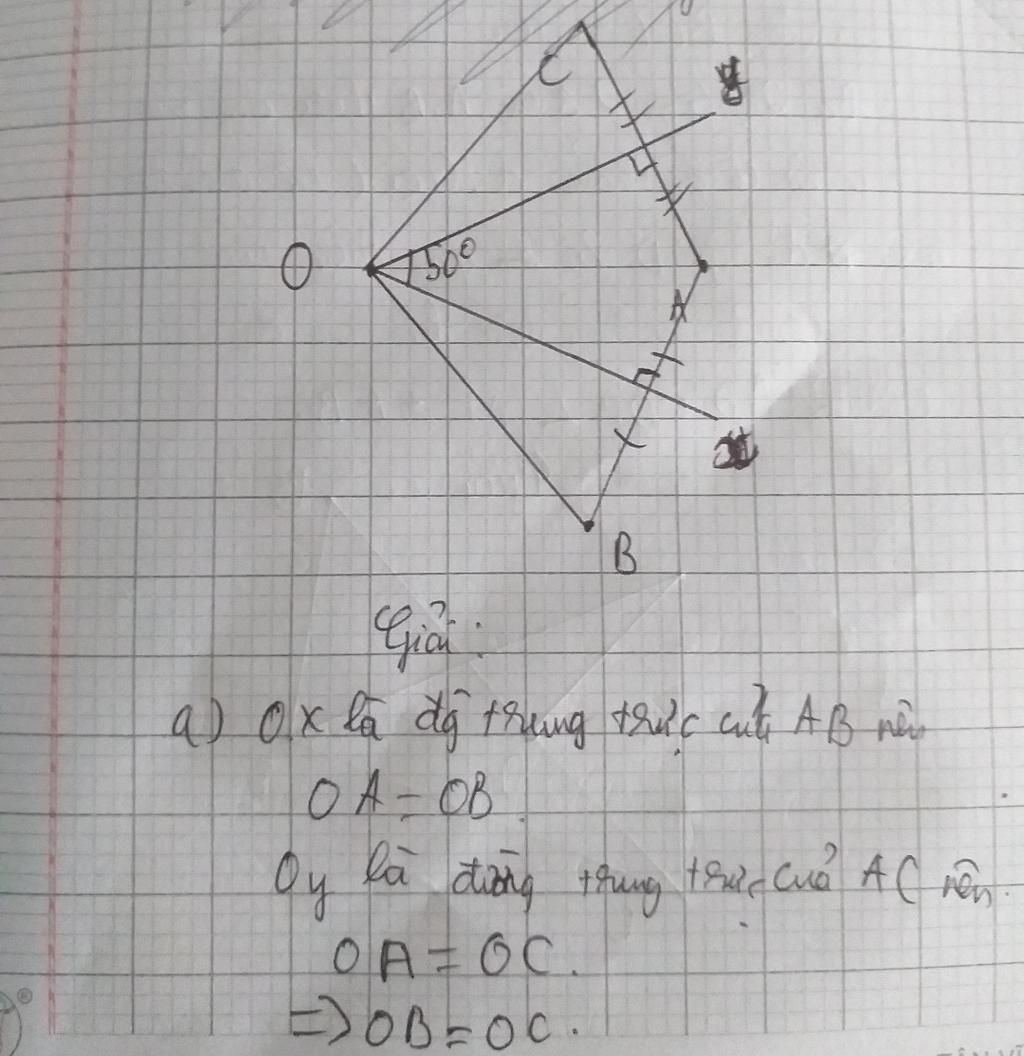 C
y
O
50°
A
x
B
Giải:
a) Ox là đg trung trực của AB nên
OA = OB.
Oy là đường trung trực của AC nên
OA = OC.
=> OB = OC.